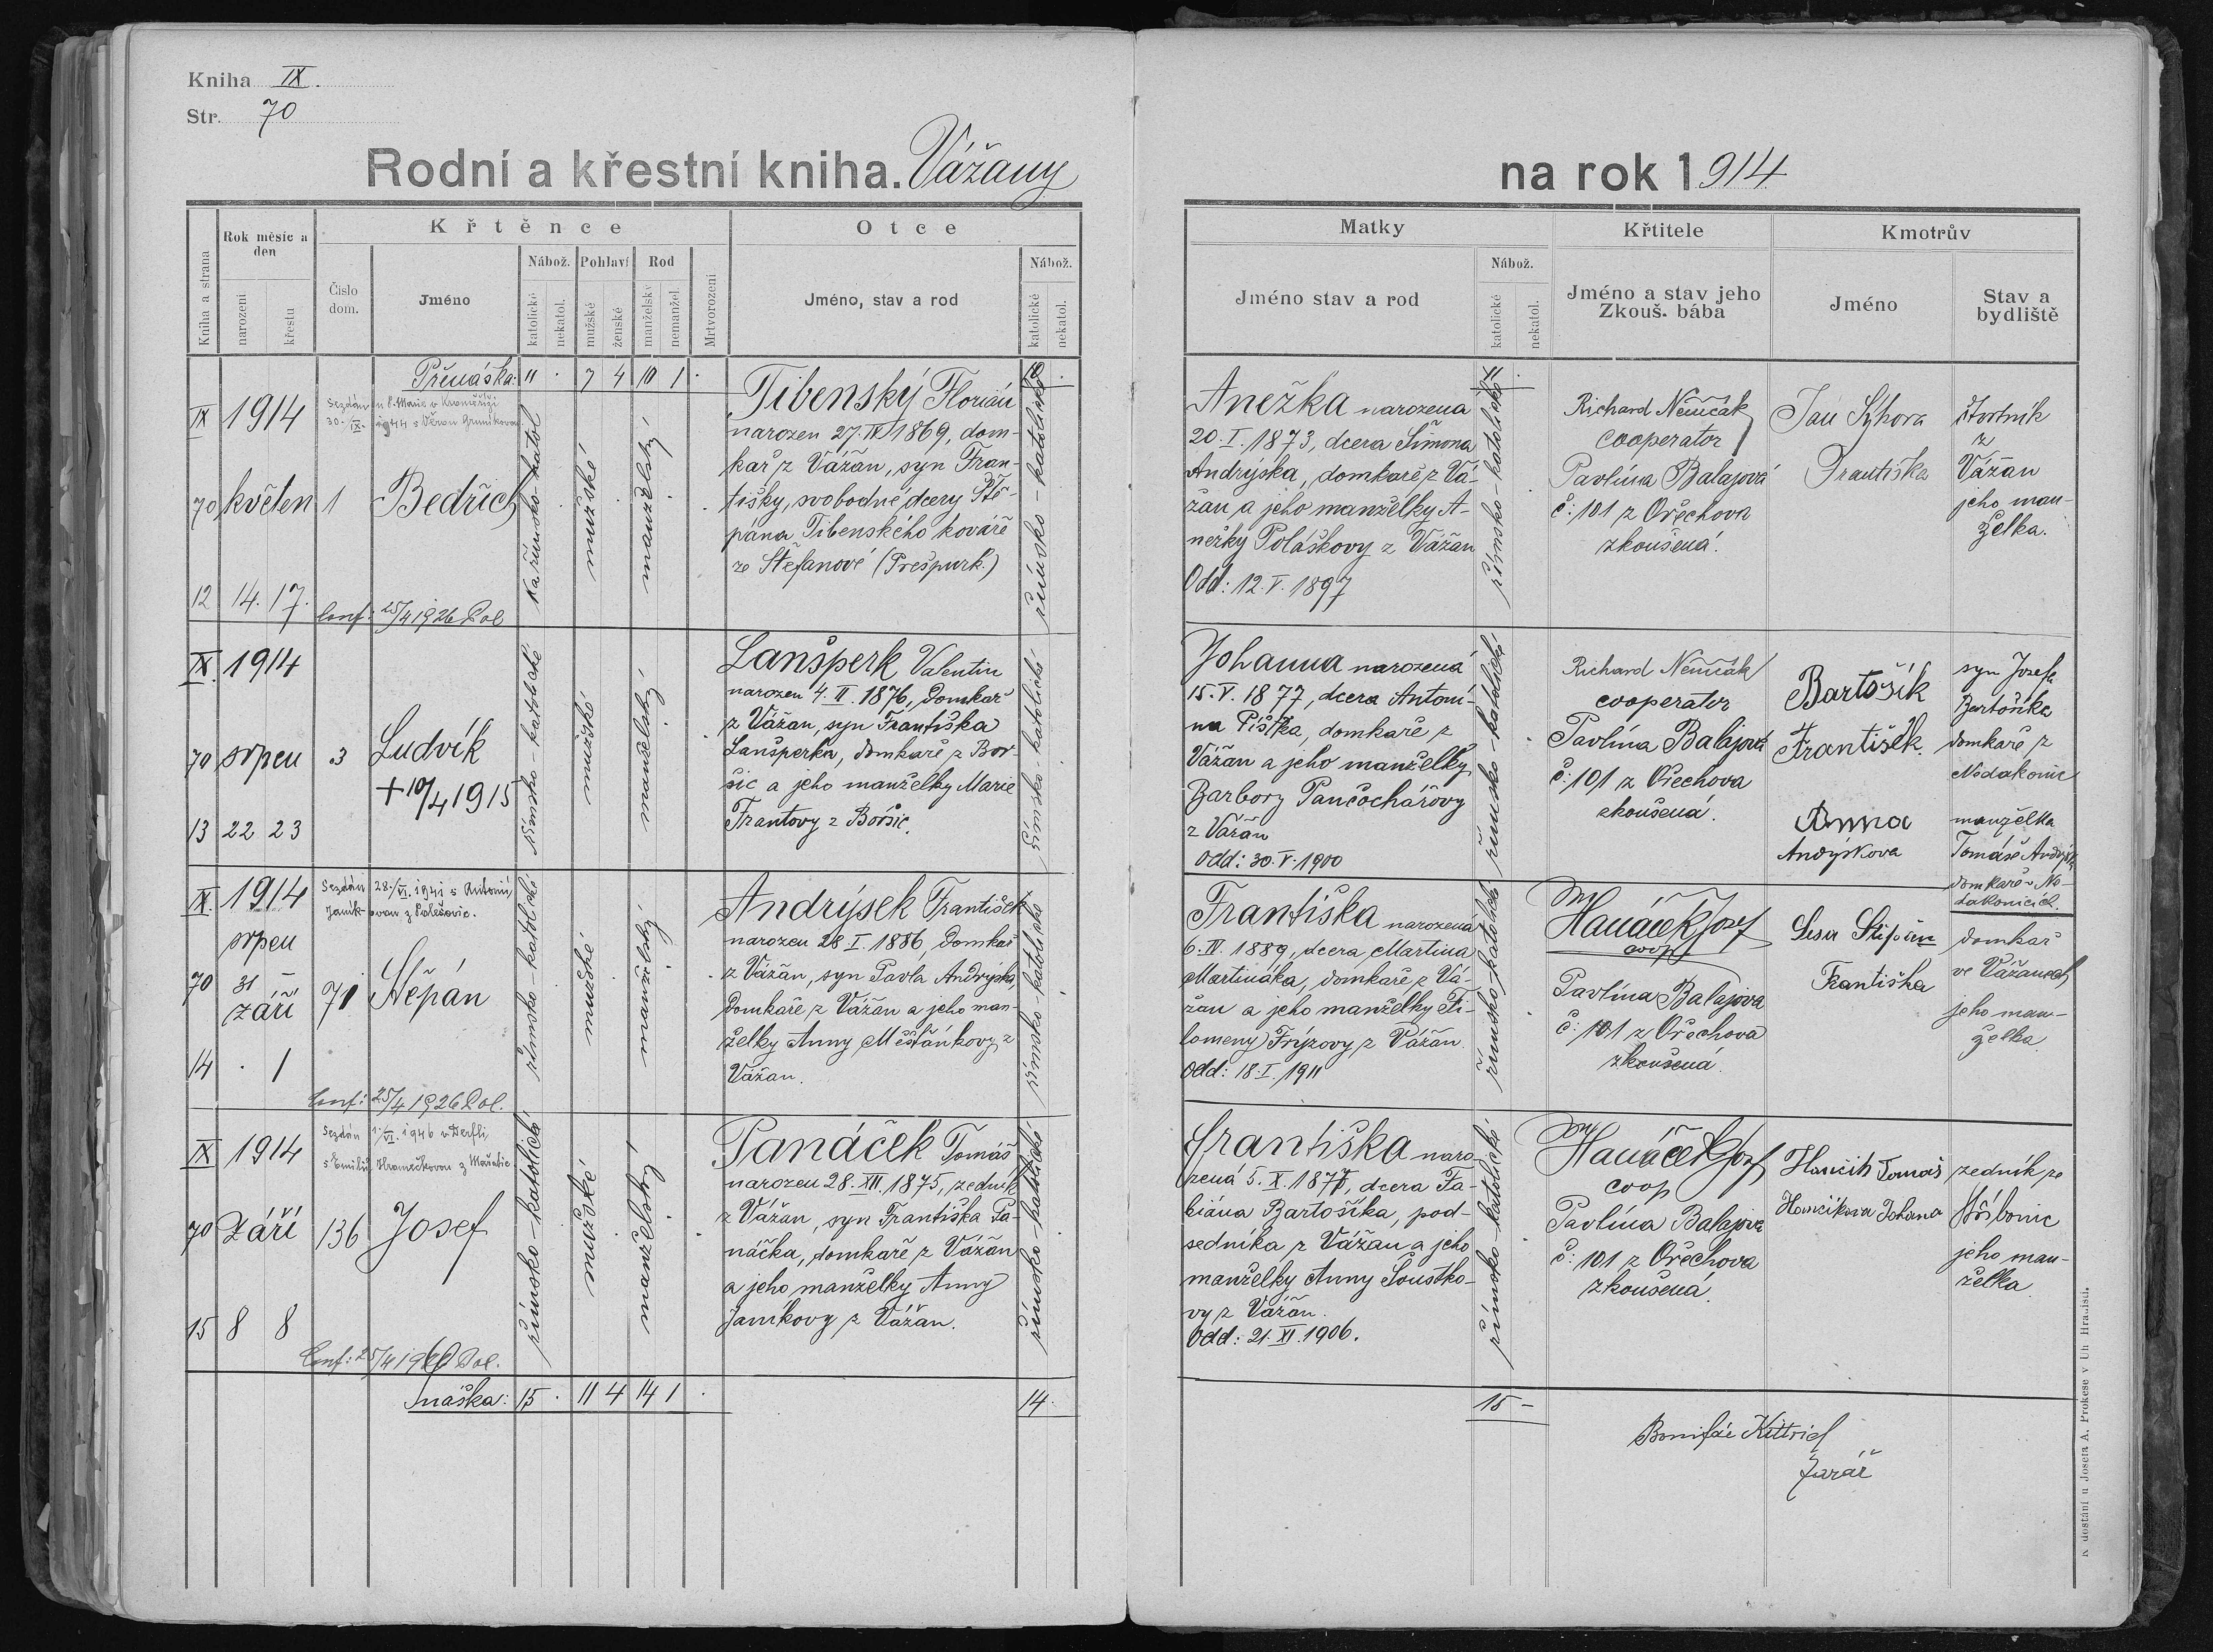 Kniha IX.
Str. 70
Rodní a křestní kniha. Vážany
na rok 1914
Kniha a strana
Rok měsíc a den
narození
křestu
Číslo dom.
Křtěnce
Jméno
Nábož.
katolické
nekatol.
Pohlaví
mužské
ženské
Rod
manželský
nemanžel.
Mrtvorození
Otce
Jméno, stav a rod
Nábož.
katolické
nekatol.
Matky
Jméno stav a rod
Nábož.
katolické
nekatol.
Křtitele
Jméno a stav jeho
Zkouš. bába
Kmotrův
Jméno
Stav a bydliště
Přenáška: 11 . 7 4 10 1 . 10 . 11 .
IX 1914
70 květen 1 Bedřich
12 14. 17.
Conf: 25/4 1926 Pol
mužské
manželský
Tibenský Florián
narozen 27. IV 1869, dom-
kař z Vážan, syn Fran-
tišky, svobodné dcery Ště-
pána Tibenského kováře
ze Štefanové (Prešpurk.)
římsko-katolické
Anežka narozena
20. I. 1873, dcera Šimona
Andrýska, domkaře z Vá-
žan a jeho manželky A-
nežky Poláškovy z Vážan
Odd: 12. V. 1897
římsko-katolické
Richard Němčák
cooperator
Pavlína Balajová
č: 101 z Ořechova
zkoušená.
Jan Sýkora
Františka
čtvrtník
z
Vážan
jeho man-
želka.
IX. 1914
70 srpen 3 Ludvík
+ 10/4 1915
13 22 23
římsko-katolické
mužské
manželský
Lanšperk Valentin
narozen 4. II. 1876, domkař
z Vážan, syn Františka
Lanšperka, domkaře z Bor-
šic a jeho manželky Marie
Frantovy z Boršic.
římsko-katolické
Johanna narozená
15. V. 1877, dcera Antoní-
na Pištka, domkaře z
Vážan a jeho manželky
Barbory Pančochářovy
z Vážan
Odd: 30. V. 1900
římsko-katolické
Richard Němčák
cooperator
Pavlína Balajová
č: 101 z Ořechova
zkoušená.
Bartošík
František.
Anna
Andrýskova
syn Josefa
Bartošíka
domkaře z
Nedakonic
manželka
Tomáše Andrýska
domkaře v Ne-
dakonicích.
IX. 1914
Sezdán 28./VI. 1941 s Antonií
Janík-ovou z Polešovic.
srpen
70 31
září 71 Štěpán
14 . 1
Conf: 25/4 1926 Pol.
římsko-katolické
mužské
manželský
Andrýsek František
narozen 28. I. 1886, domkař
z Vážan, syn Pavla Andrýska,
domkaře z Vážan a jeho man-
želky Anny Měšťánkovy z
Vážan.
římsko-katolické
Františka narozená
6. IV. 1889, dcera Martina
Martináka, domkaře z Vá-
žan a jeho manželky Fi-
lomeny Frýzovy z Vážan.
Odd: 18. I. 1911
římsko-katolické
Hanáček Josef
coop
Pavlína Balajova
č: 101 z Ořechova
zkoušená.
Štěpán
Františka
domkař
ve Vážanech
jeho man-
želka.
IX 1914
Sezdán 1./VI. 1946 v Derfli
s Emilií Hramečkovou z Mařatic
70 září 136 Josef
15 8 8
římsko-katolické
mužské
manželský
Panáček Tomáš
narozen 28. XII. 1875, zedník
z Vážan, syn Františka Pa-
náčka, domkaře z Vážan
a jeho manželky Anny
Janíkovy z Vážan.
římsko-katolické
Františka naro-
zená 5. X. 1877, dcera Fa-
biána Bartošíka, pod-
sedníka z Vážan a jeho
manželky Anny Šoustko-
vy z Vážan.
Odd: 21. XI. 1906.
římsko-katolické
Hanáček Josef
coop
Pavlína Balajova
č: 101 z Ořechova
zkoušená.
Hančík Tomáš
Hančíkova Johana
zedník ze
Stříbonic
jeho man-
želka
Snáška: 15 . 11 4 14 1 . 14. 15 -
Bonifác Kittrich
farář
K dostání u Josefa A. Prokese v Uh Hradišti.